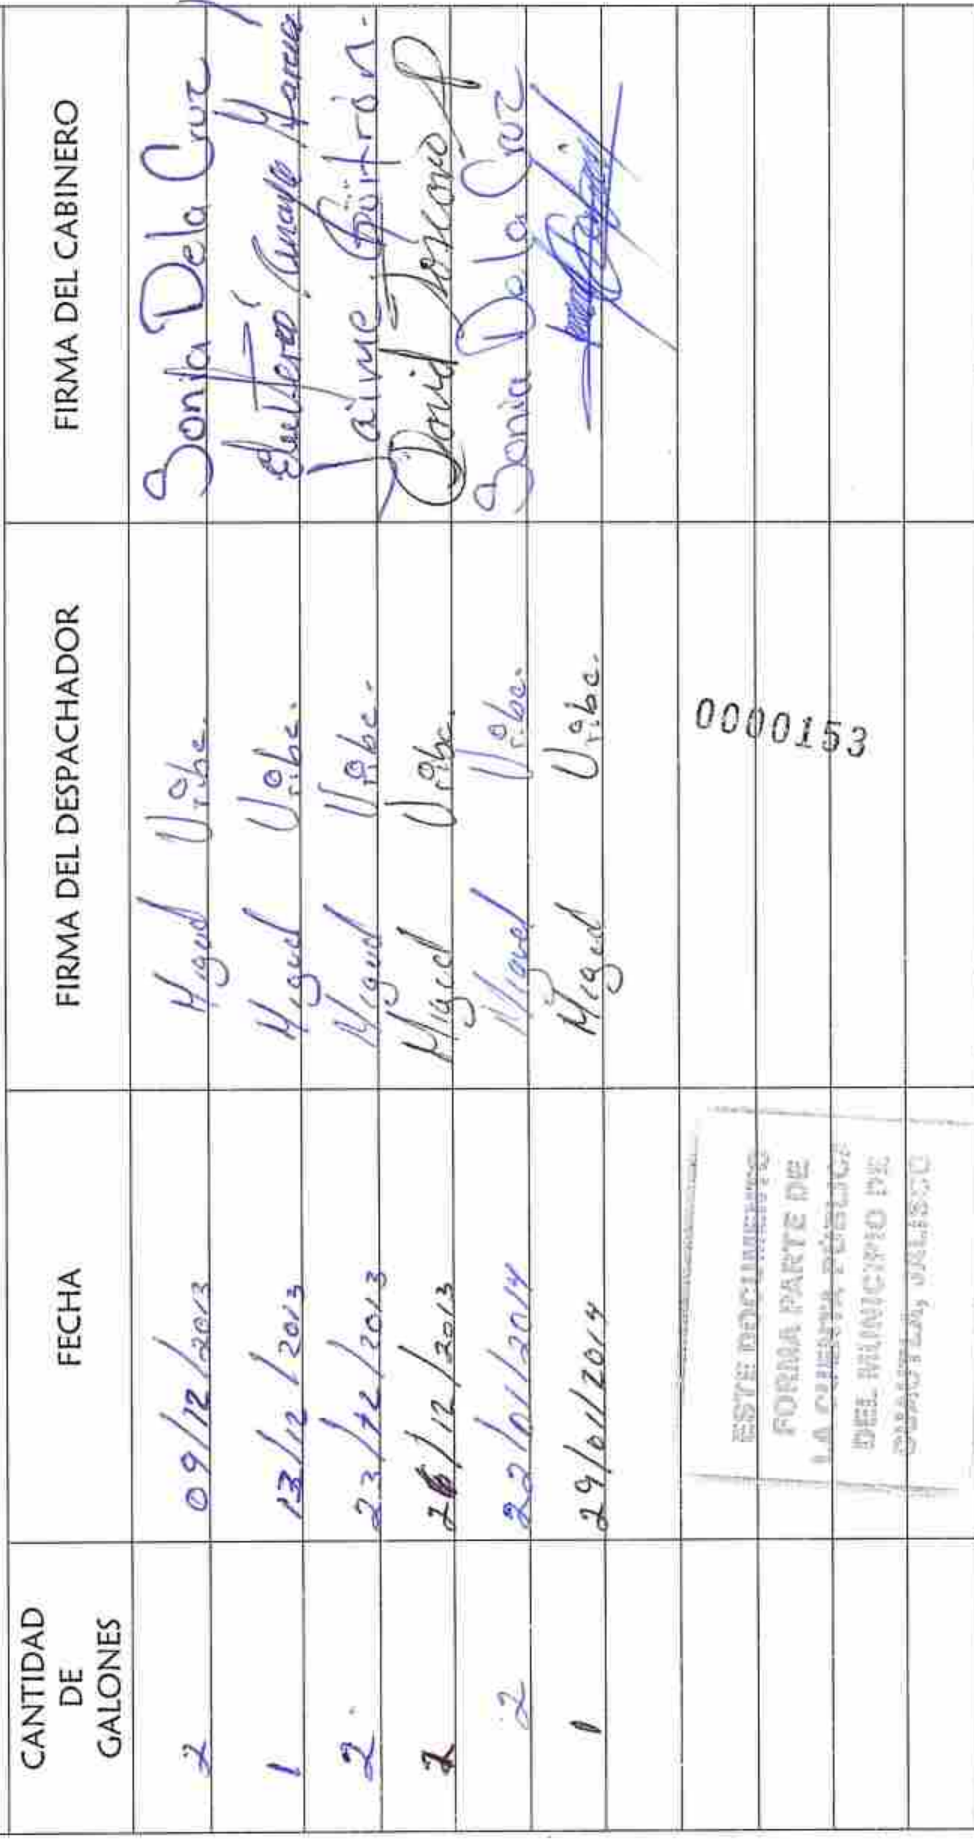 CANTIDAD DE GALONES FECHA FIRMA DEL DESPACHADOR FIRMA DEL CABINERO
2 09/12/2013 Miguel Uribe. Sonia Dela Cruz
1 13/12/2013 Miguel Uribe. Maria
2. 23/12/2013 Miguel Uribe. Jaime Buitrón.
2 26/12/2013 Miguel Uribe. David Toscano
2 22/01/2014 Miguel Uribe. Sonia De La Cruz
1 29/01/2014 Miguel Uribe.
0000153
ESTE DOCUMENTO
FORMA PARTE DE
LA CUENTA PÚBLICA
DEL MUNICIPIO DE
JALISCO